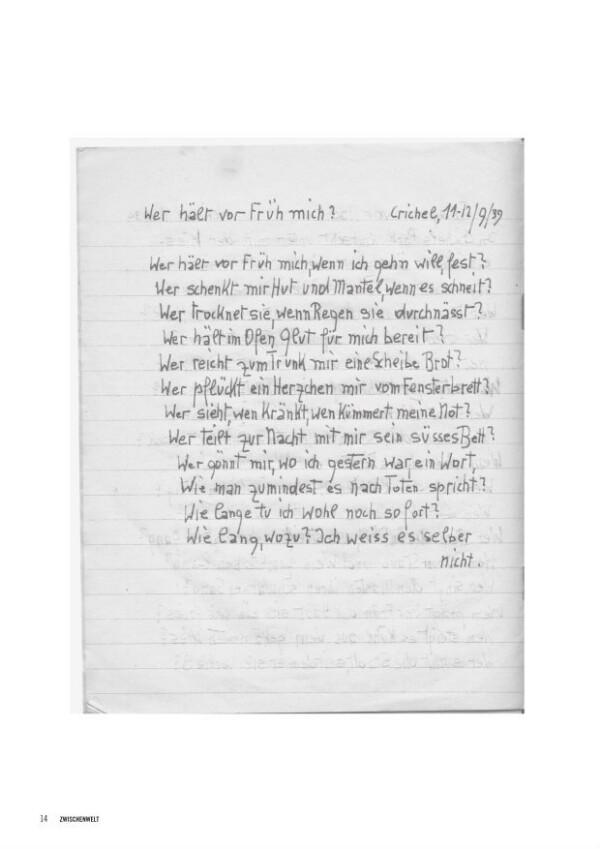 Wer hält vor Früh mich? Crichel, 11-12/9/39
Wer hält vor Früh mich, wenn ich gehn will, fest?
Wer schenkt mir Hut und Mantel, wenn es schneit?
Wer trocknet sie, wenn Regen sie durchnässt?
Wer hält im Ofen Glut für mich bereit?
Wer reicht zum Trunk mir eine Scheibe Brot?
Wer pflückt ein Herzchen mir vom Fensterbrett?
Wer sieht, wen kränkt, wen kümmert meine Not?
Wer teilt zur Nacht mit mir sein süsses Bett?
Wer gönnt mir, wo ich gestern war, ein Wort,
Wie man zumindest es nach Toten spricht?
Wie lange tu ich wohl noch so fort?
Wie lang, wozu? Ich weiss es selber
nicht.
14 ZWISCHENWELT